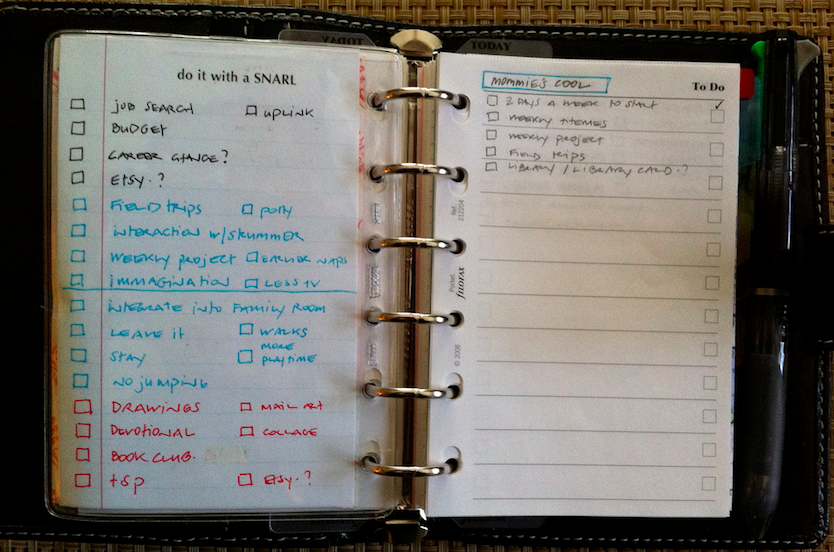 TODAY
TODAY
do it with a SNARL
JOB SEARCH
UPLINK
BUDGET
CAREER CHANGE?
ETSY.?
FIELD TRIPS
POTTY
INTERACTION W/SKUMMER
WEEKLY PROJECT
EARLIER NAPS
IMMAGINATION
LESS TV
INTEGRATE INTO FAMILY ROOM
LEAVE IT
WALKS
STAY
MORE PLAYTIME
NO JUMPING
DRAWINGS
MAIL ART
DEVOTIONAL
COLLAGE
BOOK CLUB.
TSP
ETSY.?
MOMMIE'S COOL
To Do
2 DAYS A WEEK TO START
WEEKLY THEMES
WEEKLY PROJECT
FIELD TRIPS
LIBRARY / LIBRARY CARD.?
Ref. 212204
Pocket filofax
© 2008